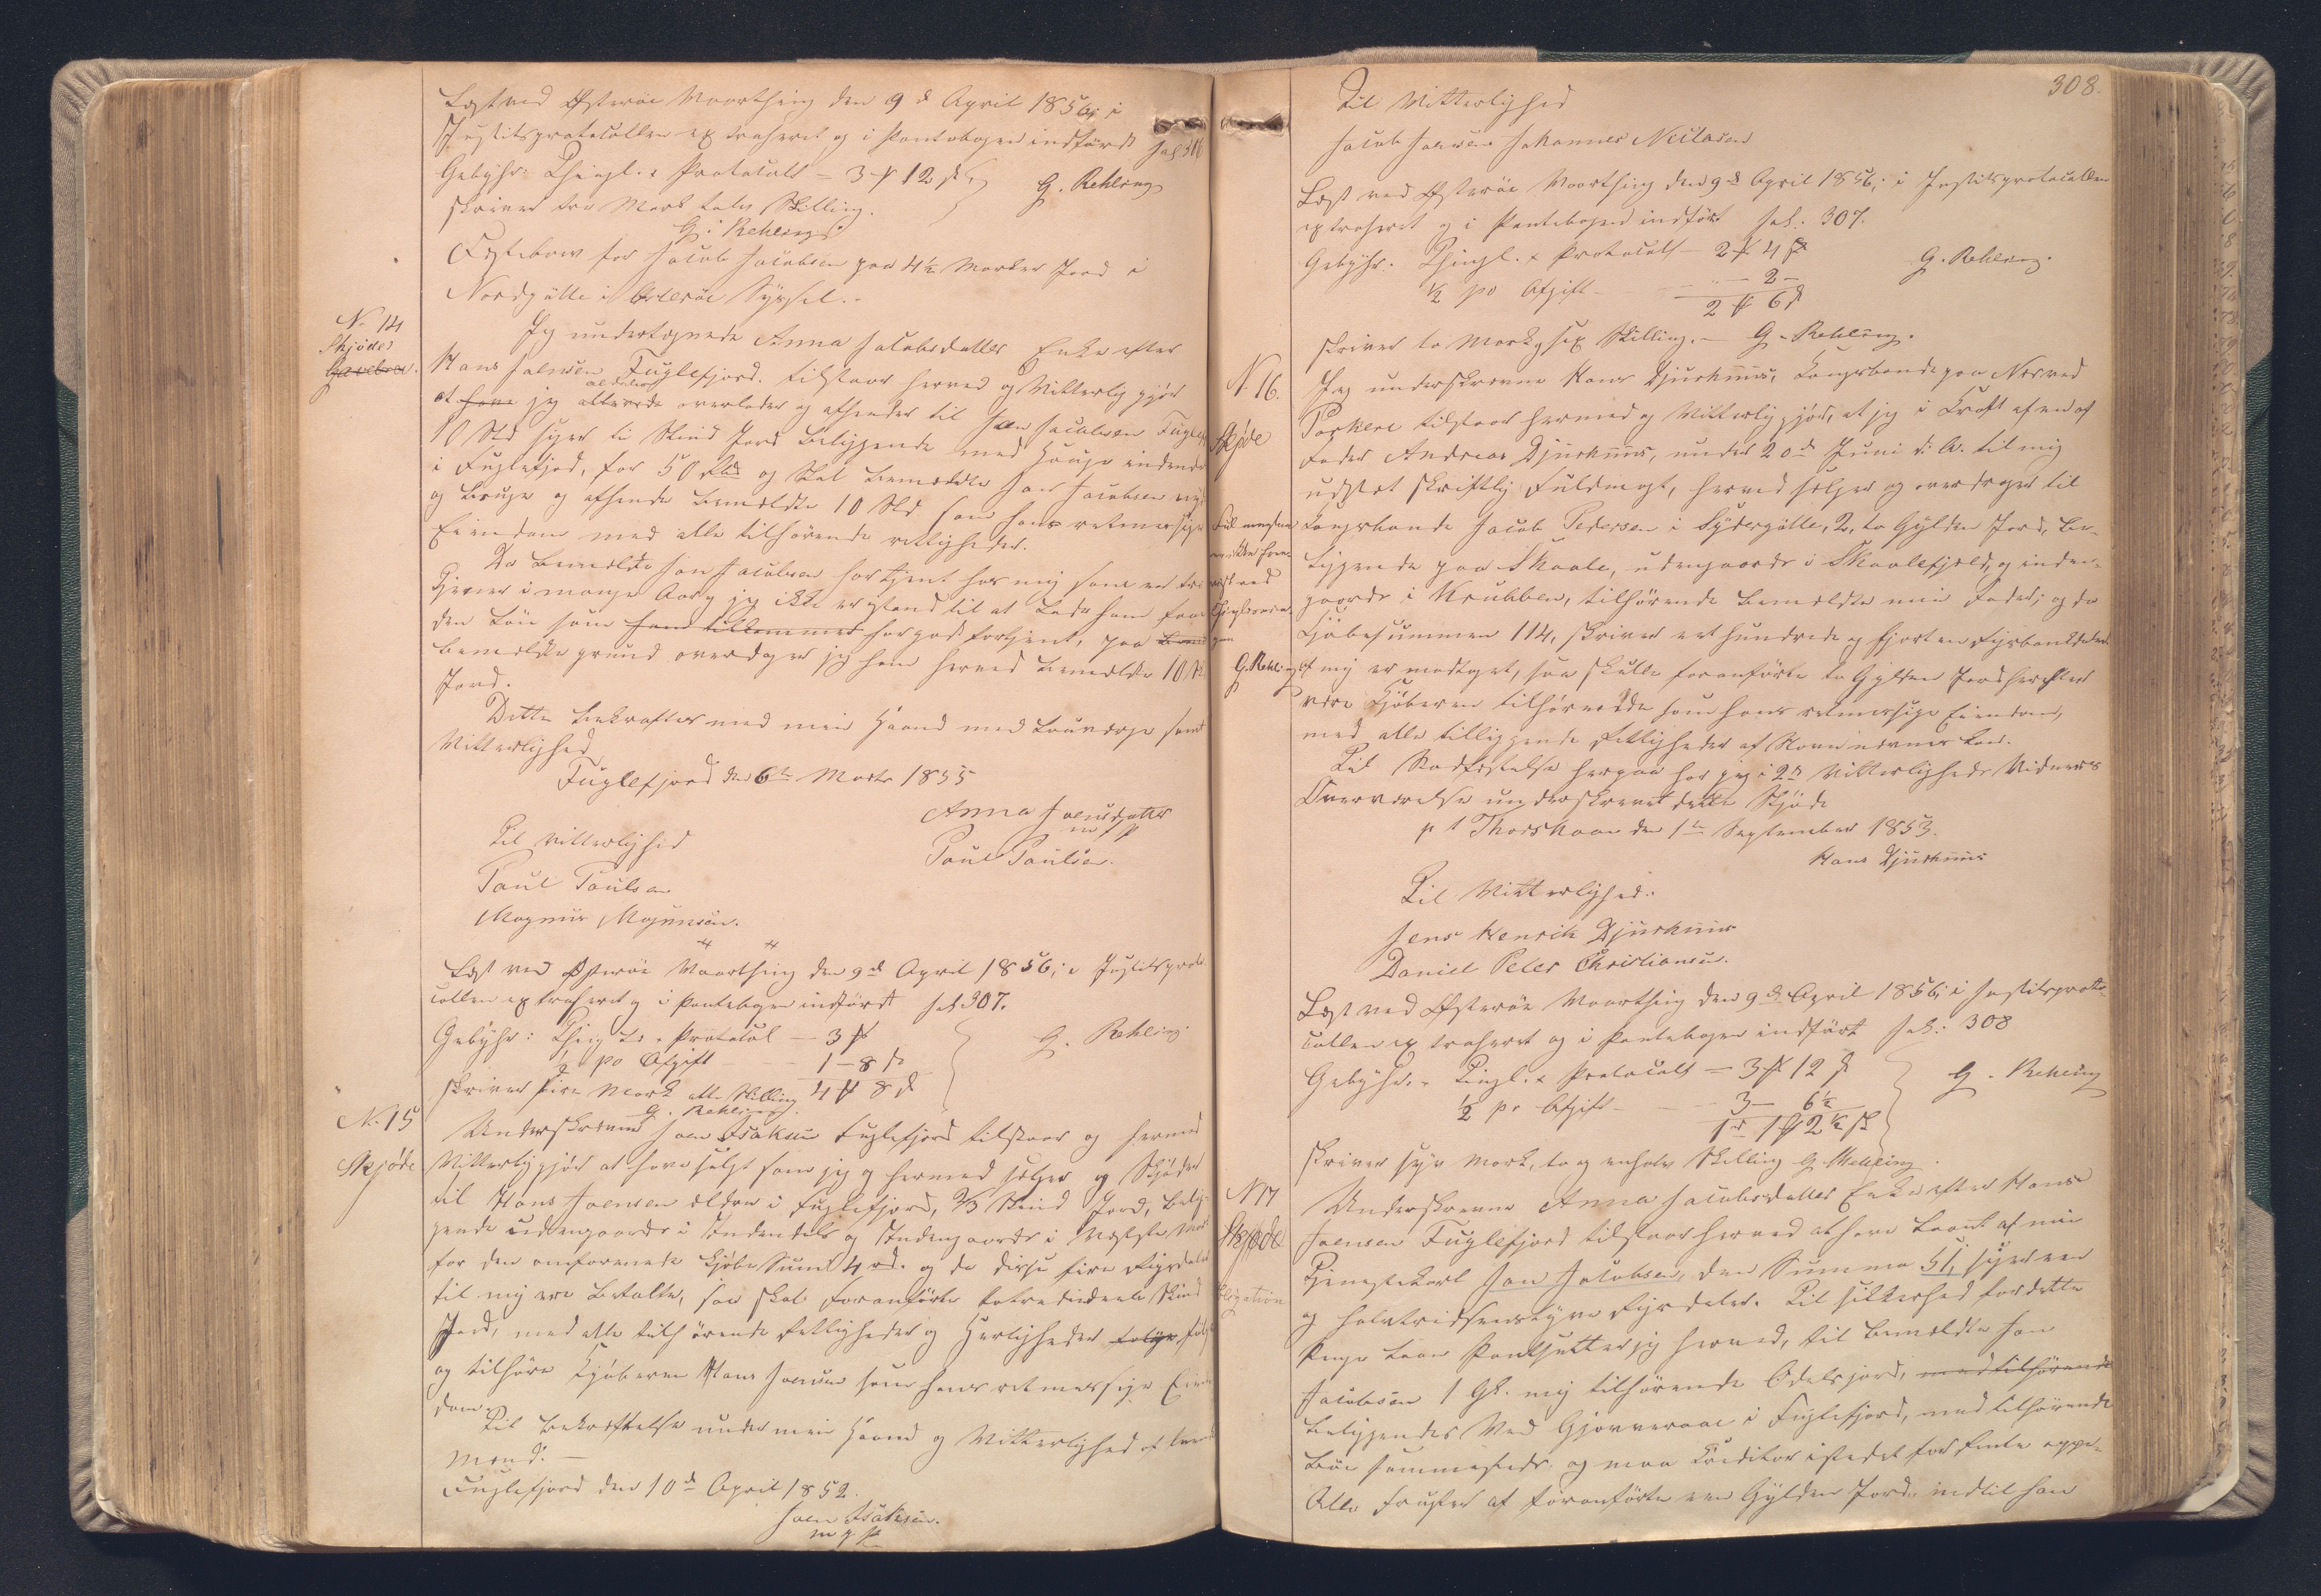 Læst ved Østerøe Vaarthing den 9de April 1856; i
Justitsprotocollen extraheret og i Pantebogen indført fol 306
Gebyhr: Thingl. & Protocolt = 3 # 12 s
skriver tre Mark tolv Skilling.
G. Rehling
G. Rehling.
Fæstebrev for Jacob Jacobsen paa 4½ Marker Jord i
Nordgøtte i Østerøe Syssel.
N. 14
Skjøde
Gavebrev.
Jeg undertegnede Anna Jacobsdatter Enke efter
Hans Joensen Fuglefjord. tilstaar herved og Vitterlig gjør
at have jeg allerede overlader og afhender til Jan Jacobsen Fuglefj
10 Skd siger ti Skind Jord beliggende med Hauge indenda
i Fuglefjord, for 50 Rbd og skal bemeldte Jan Jacobsen nyde
og bruge og afhende bemeldte 10 Skd som hans retmæssige
Eiendom med alle tilhørende rettigheder.
Da bemeldte Jan Jacobsen har tjent hos mig som en tro
Tjener i mange Aar og jeg ikke er istand til at betale ham
den Løn som ham tilkommer har godt fortjent, paa
bemeldte grund overdager jeg ham herved bemeldte 10 Sk
Jord.
Dette bekræftes med min Haand med Lauværge samt
Vitterlighed
Fuglefjord den 6te Marts 1855
Anna Joensdatter
m f p
Til vitterlighed
Paul Paulsen.
Paul Paulsen
Magnus Magnusen.
Læst ved Østerøe Vaarthing den 9de April 1856; i Justitsproto-
collen extraheret og i Pantebogen indført fol 307.
Gebyhr: Thingl. & Protocol — 3 #
½ pr Afgift — 1 – 8 s
skriver fire Mark otte Skilling 4 # 8 s
G. Rehling.
G. Rehling
N. 15
Skjøde
Underskrevne Joen Isaksen Fuglefjord tilstaar og herved
Vitterlig gjør at have solgt som jeg og hermed sælger og Skjøder
til Hans Joensen ældre i Fuglefjord, 2/3 Skind Jord, belig-
gende udengaards i Indendals og Indengaards i
for den omforenede Kjøbe Sum 4 rd. og da disse fire Rigsdaler
til mig ere betalte, saa skal foranførte totrediedeel Skind
Jord, med alle tilhørende Rettigheder og Herligheder følge følge
og tilhøre Kjøberen Hans Joensen som hans retmæssige Eien-
dom.
Til bekræftelse under min Haand og Vitterlighed af tvende
Mænd. —
Fuglefjord den 10de April 1852.
Joen Isaksen.
m f p
308.
Til Vitterlighed
Jacob Joensen Johannes Niclasen
Læst ved Østerøe Vaarthing den 9de April 1856; i Justitsprotocollen
extraheret og i Pantebogen indført fol: 307.
Gebyhr. Thingl. & Protocolt — 2 # 4 s
½ pr Afgift — 2 –
2 # 6 s
G. Rehling.
skriver to Mark sex Skilling. — G. Rehling.
N. 16.
Skjøde
Jeg underskrevne Hans Djurhuus, Kongsbonde paa Nes ved
Porkere tilstaar hermed og Vitterlig gjør, at jeg i Kraft af en af
Fader Andreas Djurhuus, under 20de Juni d: A. til mig
udstæt skriftlig Fuldmagt, herved sælger og overdrager til
Kongsbonde Jacob Pedersen i Sydergøtte, 2, to Gylden Jord, be-
liggende paa Skaale, udengaards i Skaalefjeld, og inden-
gaards i Krubben, tilhørende bemeldte min Fader; og da
Kjøbesummen 114, skriver eet hundrede og fjorten Rigsbankdaler
af mig er modtaget, saa skulle foranførte to Gylden Jord herefter
være Kjøberen tilhørende som hans retmæssige Eiendom,
med alle tilliggende Rettigheder af Navn nævnes kan.
G. Rehling
Til Stadfæstelse herpaa har jeg i 2de Vitterligheds Vidners
Overværelse underskrevet dette Skjøde
p t Thorshavn den 1te September 1853.
Hans Djurhuus
Til Vitterlighed:
Jens Henrik Djurhuus
Daniel Peter Christiansen.
Læst ved Østerøe Vaarthing den 9de April 1856; i Justitsproto-
collen extraheret og i Pantebogen indført fol: 308
Gebyhr. – Tingl. & Protocolt = 3 # 12 s
½ pr Afgift — 3 – 6½
1 rd 1 # 2½ s
G. Rehling
skriver syv Mark, to og enhalv Skilling G. Rehling.
N 17
Skjøde
Obligation
Underskrevne Anna Jacobsdatter Enke efter Hans
Joensen Fuglefjord tilstaar herved at have laant af min
Tjenestekarl Jan Jacobsen, den Summa 51, siger een
og halvtredsenstyve Rigsdaler. Til sikkerhed for dette
Penge Laan Pantsætter jeg herved, til bemeldte Jan
Jacobsen 1 Gl. mig tilhørende Odelsjord, med tilhørende
beliggendes Ved Gjøverraae i Fuglefjord, med tilhørende
Bøe sammesteds. og maa Creditor istedet for Rente oppe-
Alle Frugter af foranførte een Gylden Jord. indtil han